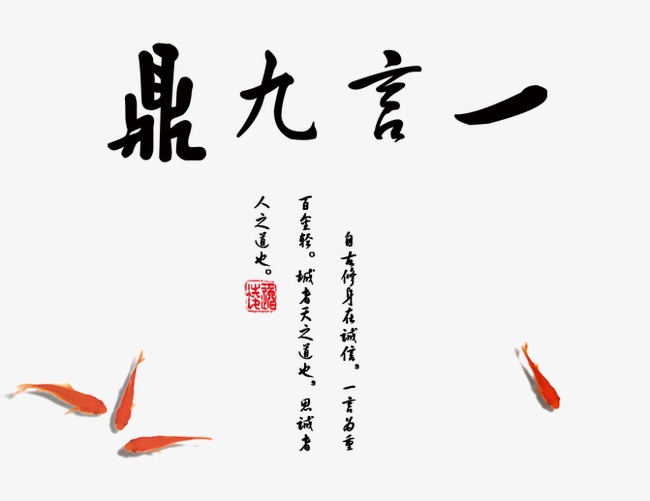 一言九鼎
自古修身在誠信。一言为重
百金轻。城者天之道也。思誠者
人之道也。